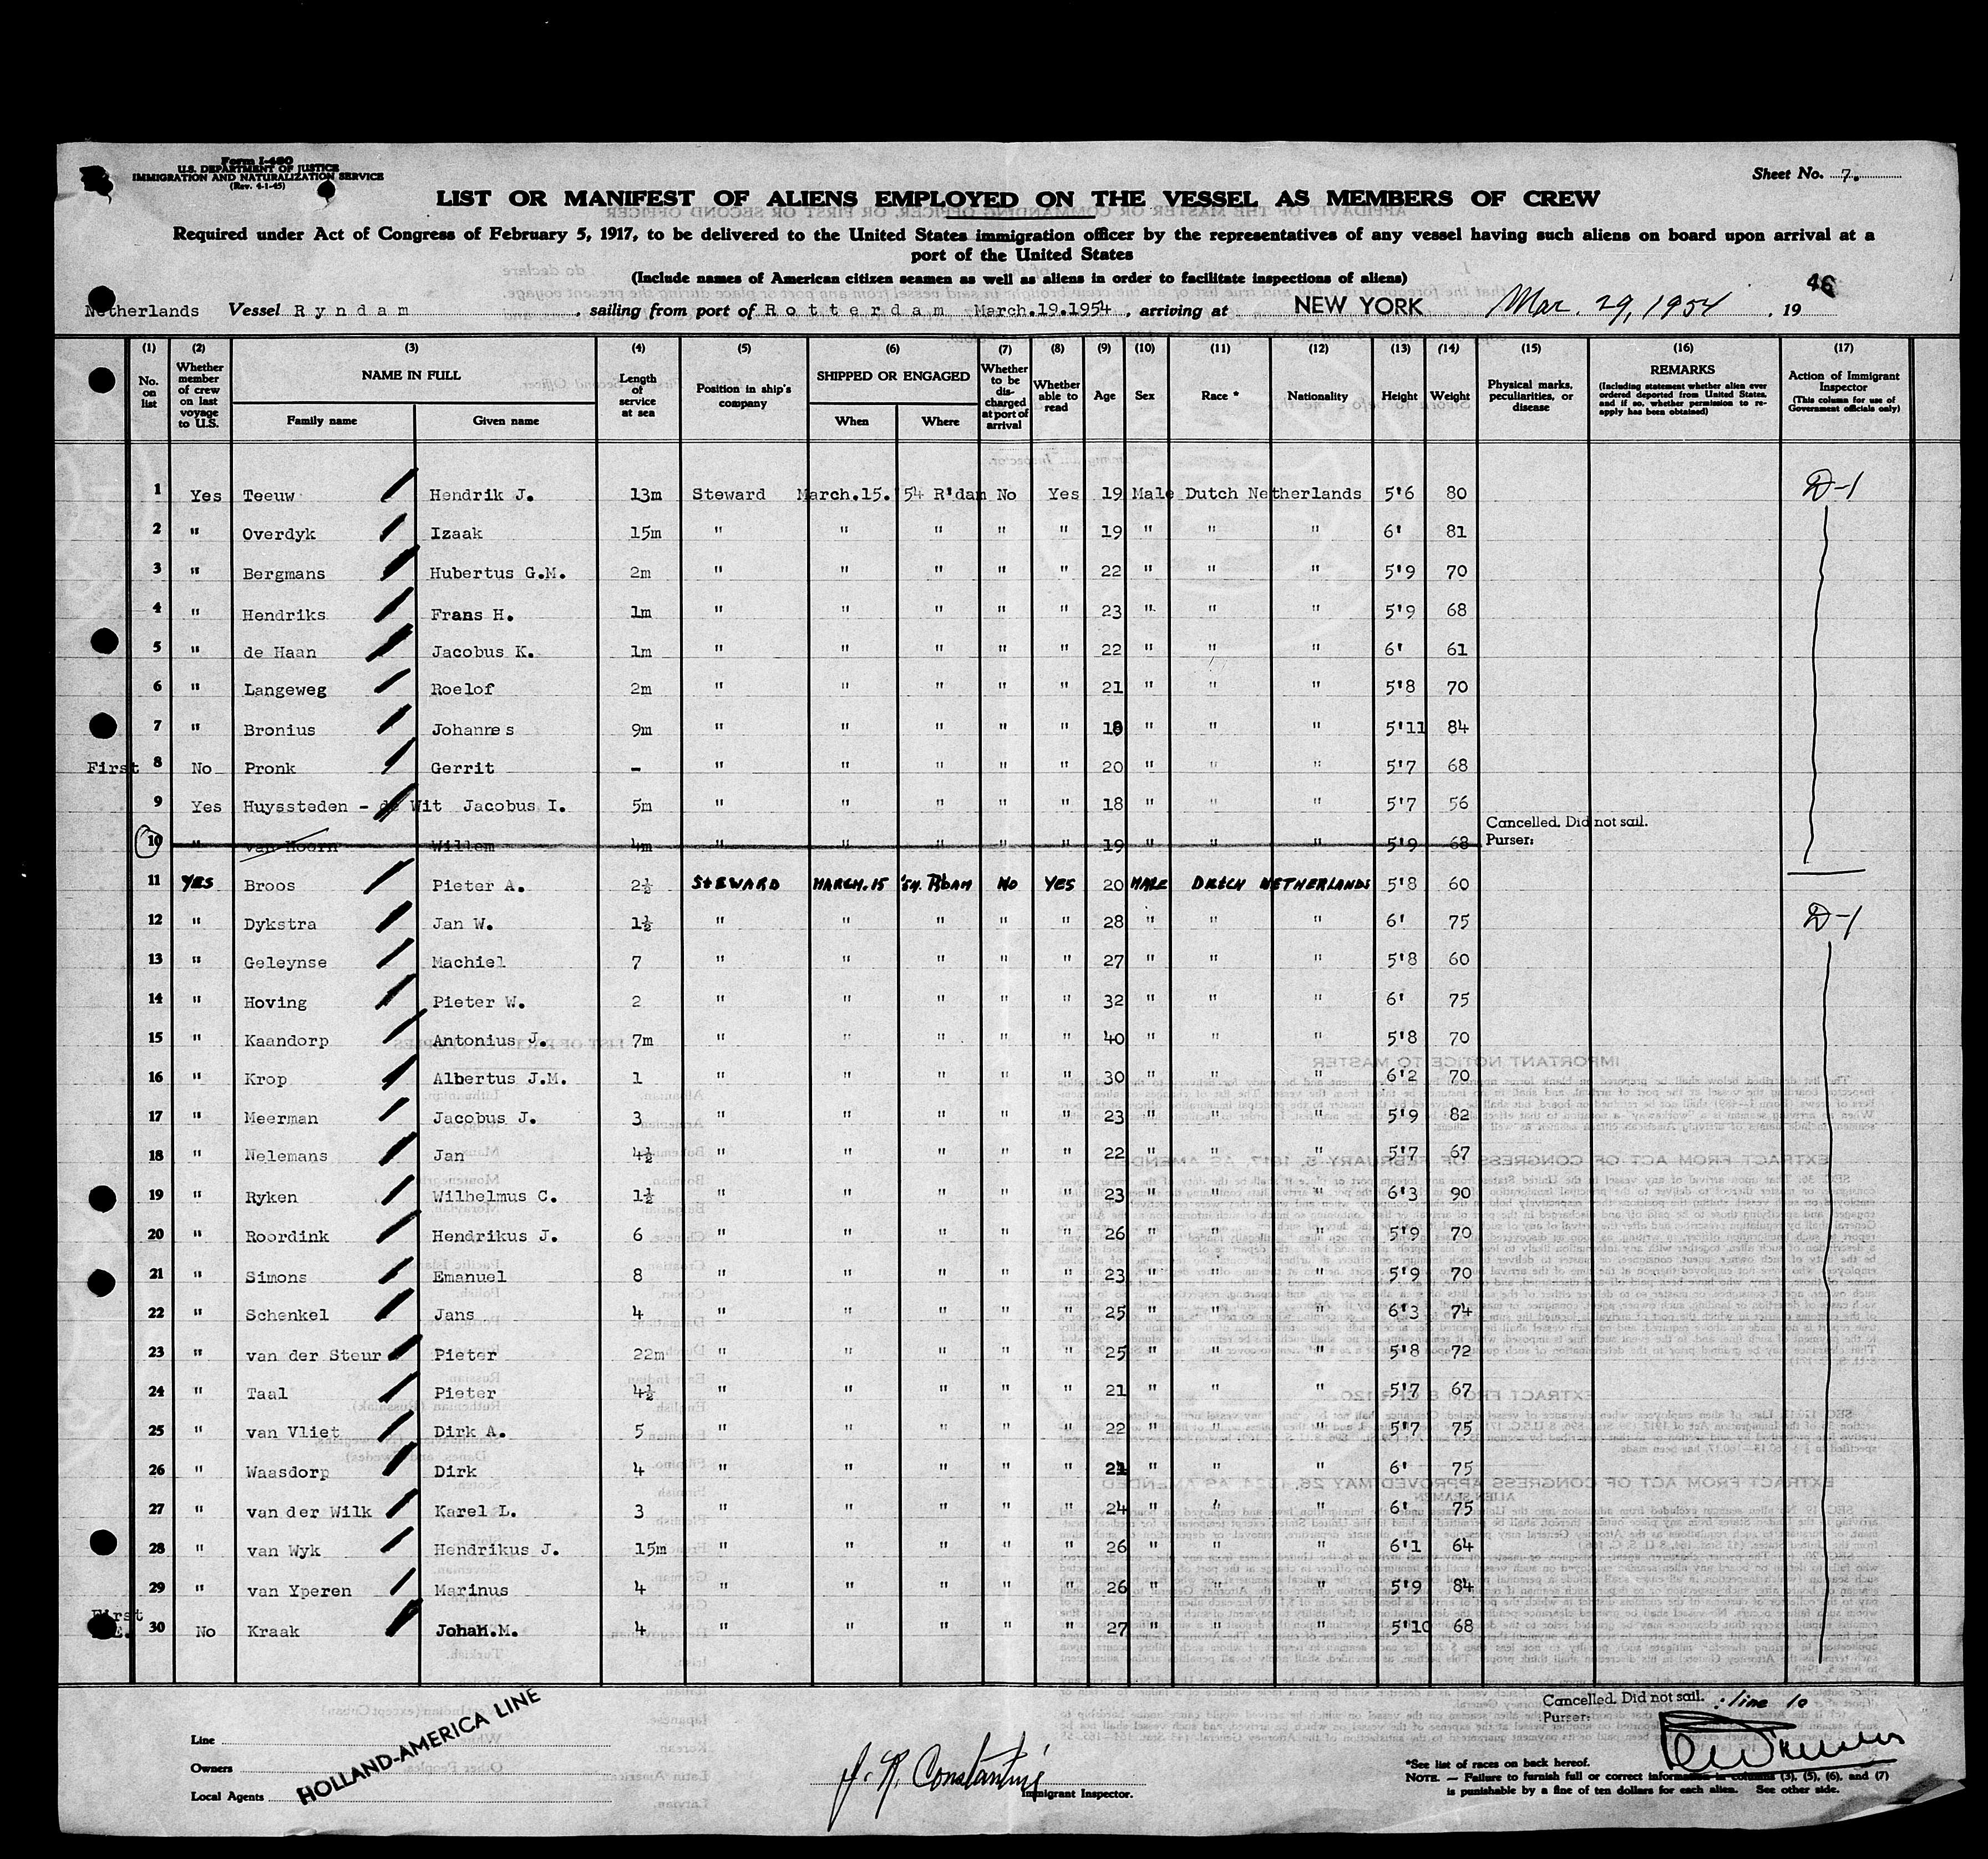 Form I-480
U.S. DEPARTMENT OF JUSTICE
IMMIGRATION AND NATURALIZATION SERVICE
(Rev. 4-1-45)
Sheet No. 7.
LIST OR MANIFEST OF ALIENS EMPLOYED ON THE VESSEL AS MEMBERS OF CREW
Required under Act of Congress of February 5, 1917, to be delivered to the United States immigration officer by the representatives of any vessel having such aliens on board upon arrival at a
port of the United States
(Include names of American citizen seamen as well as aliens in order to facilitate inspections of aliens)
46
Netherlands Vessel Ryndam , sailing from port of Rotterdam March.19.1954 , arriving at NEW YORK Mar. 29, 1954 , 19
(1) (2) (3) (4) (5) (6) (7) (8) (9) (10) (11) (12) (13) (14) (15) (16) (17)
No. on list
Whether member of crew on last voyage to U.S.
NAME IN FULL
Family name Given name
Length of service at sea
Position in ship's company
SHIPPED OR ENGAGED
When Where
Whether to be discharged at port of arrival
Whether able to read
Age Sex Race * Nationality Height Weight
Physical marks, peculiarities, or disease
REMARKS
(Including statement whether alien ever ordered deported from United States, and if so, whether permission to reapply has been obtained)
Action of Immigrant Inspector
(This column for use of Government officials only)
1 Yes Teeuw Hendrik J. 13m Steward March.15.'54 R'dam No Yes 19 Male Dutch Netherlands 5'6 80 D-1
2 " Overdyk Izaak 15m " " " " " 19 " " " 6' 81
3 " Bergmans Hubertus G.M. 2m " " " " " 22 " " " 5'9 70
4 " Hendriks Frans H. 1m " " " " " 23 " " " 5'9 68
5 " de Haan Jacobus K. 1m " " " " " 22 " " " 6' 61
6 " Langeweg Roelof 2m " " " " " 21 " " " 5'8 70
7 " Bronius Johannes 9m " " " " " " " " 5'11 84
First 8 No Pronk Gerrit - " " " " " 20 " " " 5'7 68
9 Yes Huyssteden - de Wit Jacobus I. 5m " " " " " 18 " " " 5'7 56
Cancelled. Did not sail.
Purser:
10 " van Hoorn Willem 4m " " " " " 19 " " " 5'9 68
11 YES Broos Pieter A. 2½ STEWARD MARCH.15 '54. R'DAM NO YES 20 MALE DUTCH NETHERLANDS 5'8 60
12 " Dykstra Jan W. 1½ " " " " " 28 " " " 6' 75 D-1
13 " Geleynse Machiel 7 " " " " " 27 " " " 5'8 60
14 " Hoving Pieter W. 2 " " " " " 32 " " " 6' 75
15 " Kaandorp Antonius J. 7m " " " " " 40 " " " 5'8 70
16 " Krop Albertus J.M. 1 " " " " " 30 " " " 6'2 70
17 " Meerman Jacobus J. 3 " " " " " 23 " " " 5'9 82
18 " Nelemans Jan 4½ " " " " " 22 " " " 5'7 67
19 " Ryken Wilhelmus C. 1½ " " " " " 23 " " " 6'3 90
20 " Roordink Hendrikus J. 6 " " " " " 26 " " " 5'9 70
21 " Simons Emanuel 8 " " " " " 23 " " " 5'9 70
22 " Schenkel Jans 4 " " " " " 25 " " " 6'3 74
23 " van der Steur Pieter 22m " " " " " 25 " " " 5'8 72
24 " Taal Pieter 4½ " " " " " 21 " " " 5'7 67
25 " van Vliet Dirk A. 5 " " " " " 22 " " " 5'7 75
26 " Waasdorp Dirk 4 " " " " " " " " 6' 75
27 " van der Wilk Karel L. 3 " " " " " 24 " " " 6' 75
28 " van Wyk Hendrikus J. 15m " " " " " 26 " " " 6'1 64
29 " van Yperen Marinus 4 " " " " " 26 " " " 5'9 84
First
30 No Kraak Johan.M. 4 " " " " " 27 " " " 5'10 68
Cancelled. Did not sail. : line 10
Purser:
Line
Owners
Local Agents
HOLLAND-AMERICA LINE
Immigrant Inspector.
*See list of races on back hereof.
NOTE. — Failure to furnish full or correct information in columns (3), (5), (6), and (7)
is punishable by a fine of ten dollars for each alien. See other side.